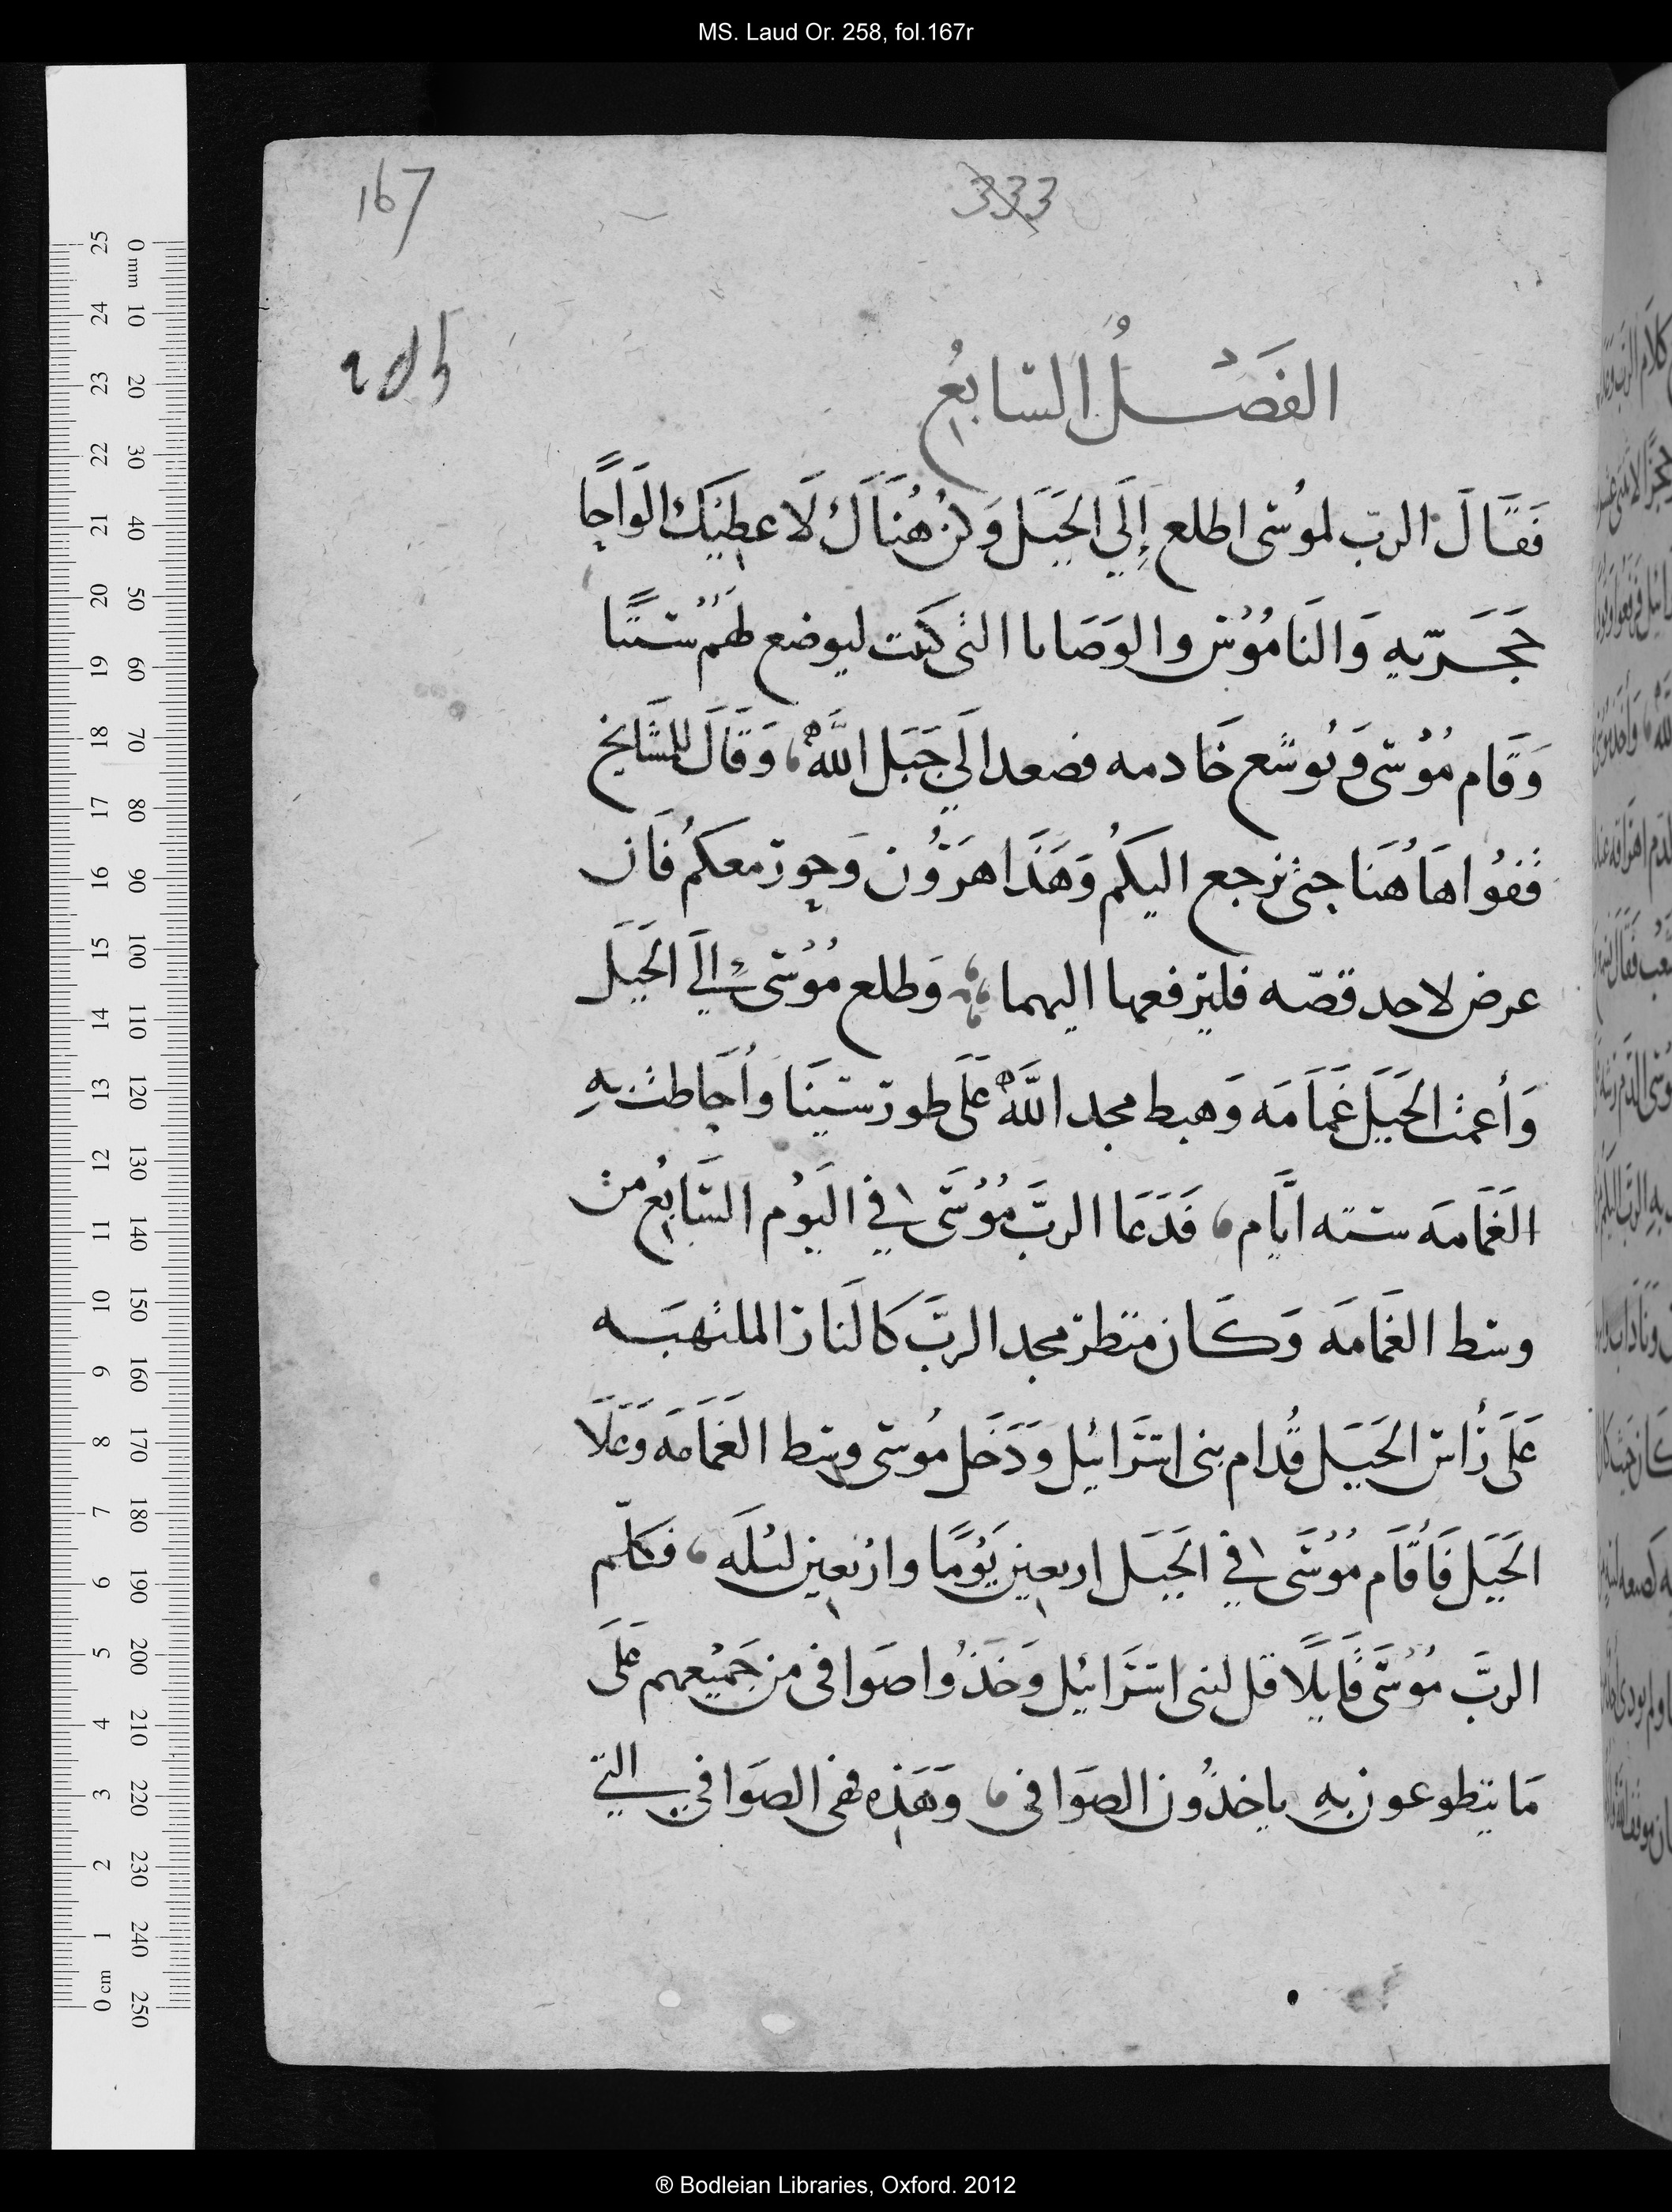 MS. Laud Or. 258, fol.167r
167
333
الفَصْلُ السَابعُ
فَقَالَ الرب لموُسى اطلع إِلَي الجَبَل وَكُن هُنَاَكَ لَاعطِيَك الوَاحًا
حَجَريه وَالنَامُوُس والوَصَايا التى كتبت ليوضع لهُم سُنَنًا
وَقَام مُوُسى وَيُوشع خَادمه فصعد الَي جَبَل اللَّه وَقَالَ للمشَايخ
قفوُا هَاهُنَا حتى نرجع اليكُم وَهَذَا هَرُون وَحور معكُم فَان
عرض لاحد قصّه فليرفعها اليهما وَطلع مُوُسى إلَي الجَبَل
وَأعمت الجَبَل غَمَامَه وَهبط مجد اللَّه عَلَى طور سَينَا وأحَاطت بهِ
الغَمَامَه سته ايَّام فَدَعَا الربَّ مُوُسَى في اليَوُم السَابعُ من
وسط الغَمامَه وَكَان منظر مجد الربَّ كَالنَار الملتهبَه
عَلَى رَأس الجَبَل قُدام بنى اسَرائيل وَدَخَل مُوسى وسط الغَمَامَه وَعَلَا
الجَبَل فَأقَام مُوُسَى في الجَبَل اربعين يَوُمًا واربَعين ليُلَه فكلّم
الربَّ مُوُسَى قَايلًا قل لبنى اسَرَائيل وَخَذُوا صَوافى من جَميُعهم عَلَى
مَا يتطوعون بهِ ياخذُون الصَوَافى وَهَذه هى الصَوَافي التي
25 24 23 22 21 20 19 18 17 16 15 14 13 12 11 10 9 8 7 6 5 4 3 2 1 cm 0
0 mm 10 20 30 40 50 60 70 80 90 100 110 120 130 140 150 160 170 180 190 200 210 220 230 240 250
® Bodleian Libraries, Oxford. 2012